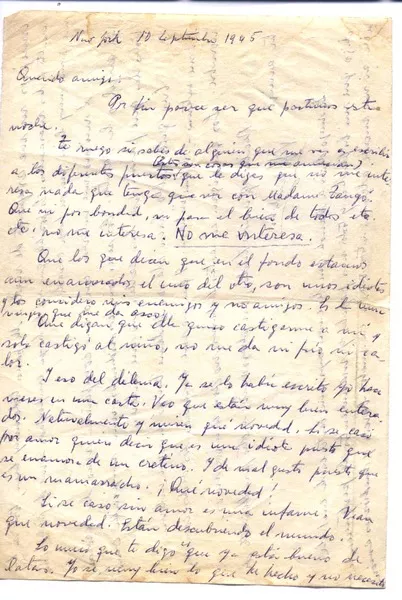 New York 10 Septiembre 1945
Querido amigo:
Por fin parece ser que partimos esta
noche.
Te ruego si sabes de alguien que me va a escribir
(Estas son cosas que me
a los diferentes puertos que le digas que no me inte-
resa nada que tenga que ver con Madame Tangó.
Que ni por bondad, ni para el bien de todos etc
etc. no me interesa. No me interesa.
Que los que decían que en el fondo estamos
aun enamorados el uno del otro, son unos idiotas
y los considero mis enemigos y no amigos. Es de
que me da asco.
Que digan que ella quiso castigarme a mí y
solo castigó al niño, no me da ni frio ni ca-
lor.
Y eso del dilema. Ya se lo había escrito yo hace
meses en una carta. Veo que están muy bien entera-
dos. Naturalmente y miren qué novedad. Si se casó
por amor quiere decir que es una idiota puesto que
se enamoró de un cretino. Y de mal gusto puesto que
es un mamarracho. ¡Qué novedad!
Si se casó sin amor es una infame. Vean
que novedad. Están descubriendo el mundo.
Lo único que te digo que ya está bueno de
latas. Yo se muy bien lo que he hecho y no necesito